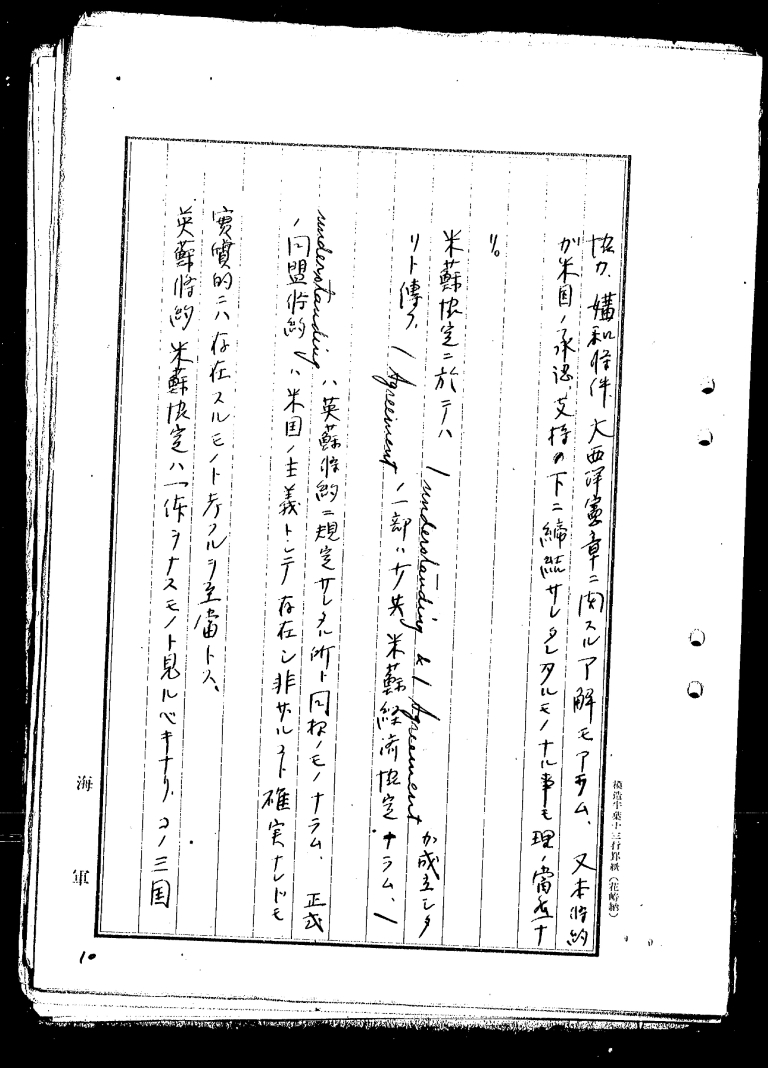 協力、媾和條件、大西洋憲章ニ関スル了解モアラム、又本條約
が米国ノ承認支持の下ニ締結サレタルモノナル事モ理ノ當然ナ
リ。
米蘇協定ニ於テハ 1 understanding & 1 Agreement が成立シタ
リト傳フ、1 Agreement ノ一部ハ 米蘇経済協定ナラム、1
understanding ハ英蘇條約ニ規定サレタル所ト同様ノモノナラム、正式
ノ同盟條約ハ米国ノ主義トシテ存在シ非ザルコト確実ナレドモ
實質的ニハ存在スルモノト考フルヲ至當トス、
英蘇條約 米蘇協定ハ一体ヲナスモノト見ルベキナリ、コノ三国
模造半葉十三行罫紙(花崎納)
海軍
10